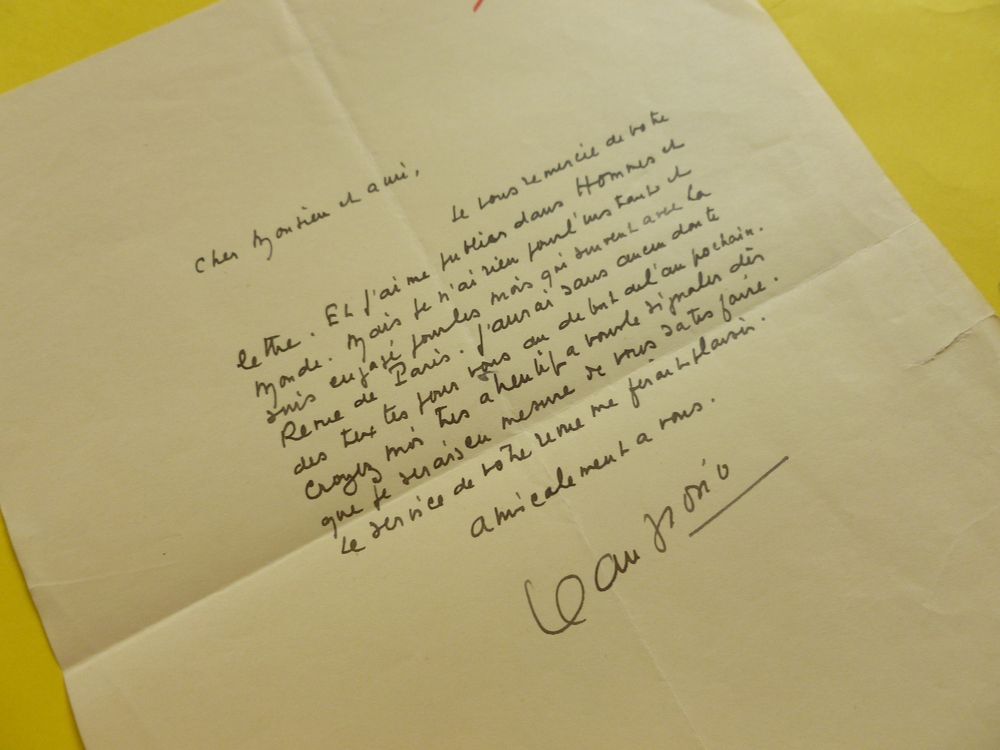 Cher Monsieur et ami,
Je vous remercie de votre
lettre. Et j'aime publier dans Hommes et
Monde. Mais je n'ai rien pour l'instant et
suis engagé pour les mois qui suivent avec la
Revue de Paris. J'aurai sans aucun doute
des textes pour vous au début de l'an prochain.
Croyez moi très attentif a vous le signaler dès
que je serais en mesure de vous satisfaire.
Le service de votre revue me ferait plaisir.
amicalement a vous.
Jean Giono